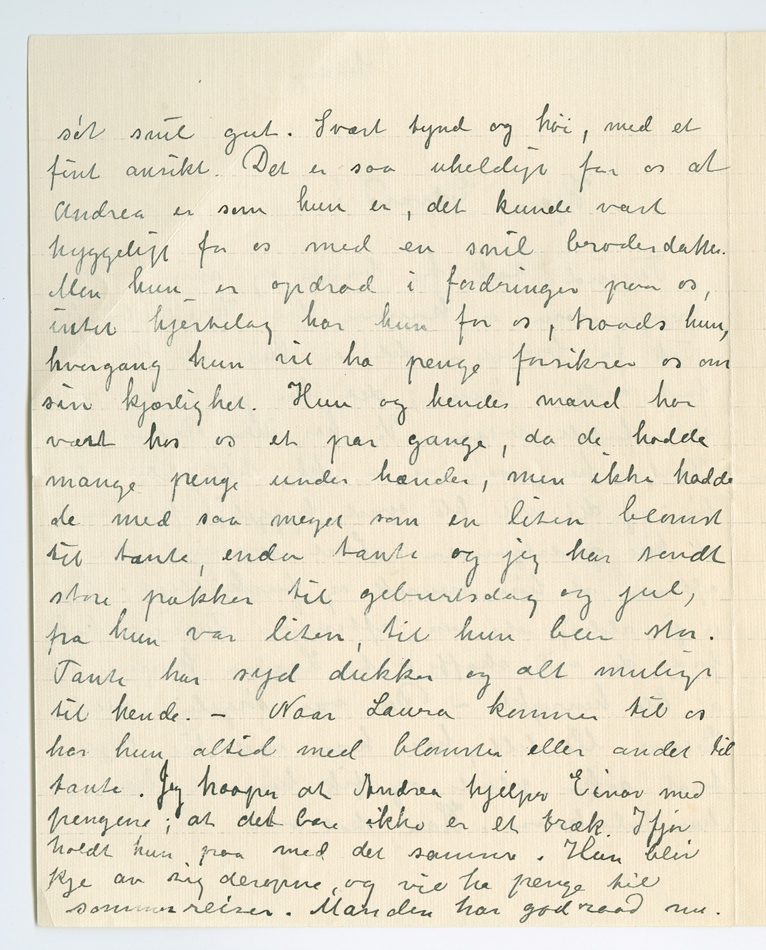 söt snil gut. Svært tynd og höi, med et
fint ansikt. Det er saa uheldigt for os at
Andrea er som hun er, det kunde vært
hyggeligt for os med en snil broderdatter.
Men hun er opdrad i fordringer paa os,
intet hjertelag har hun for os, traads hun,
hvergang hun vil ha penge forsikrer os om
sin kjærlighet. Hun og hendes mand har
vært hos os et par gange, da de hadde
mange penge under hænder, men ikke hadde
de med saa meget som en liten blomst
til tante, enda tante og jeg har sendt
store pakker til geburtsdag og jul,
fra hun var liten, til hun blev stor.
Tante har syd dukker og alt muligt
til hende. – Naar Laura kommer til os
har hun altid med blomster eller andet til
tante. Jeg haaper at Andrea hjelper Einar med
pengene; at det bare ikke er et træk. Ifjor
holdt hun paa med det samme. Hun blir
kje av sig deroppe, og vil ha penge til
sommerreiser. Manden har god raad nu.